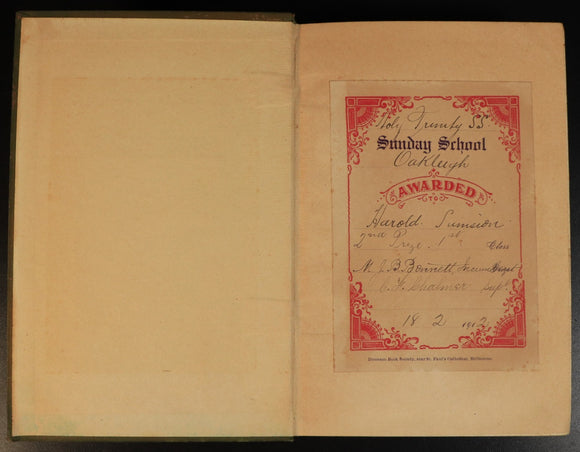 Holy Trinity SS.
Sunday School
Oakleigh
AWARDED
TO
Harold Sumsion
2nd Prize. 1st Class
M J. B. Bennett,
Supt
18 2 1912
Diocesan Book Society, near St. Paul's Cathedral, Melbourne.